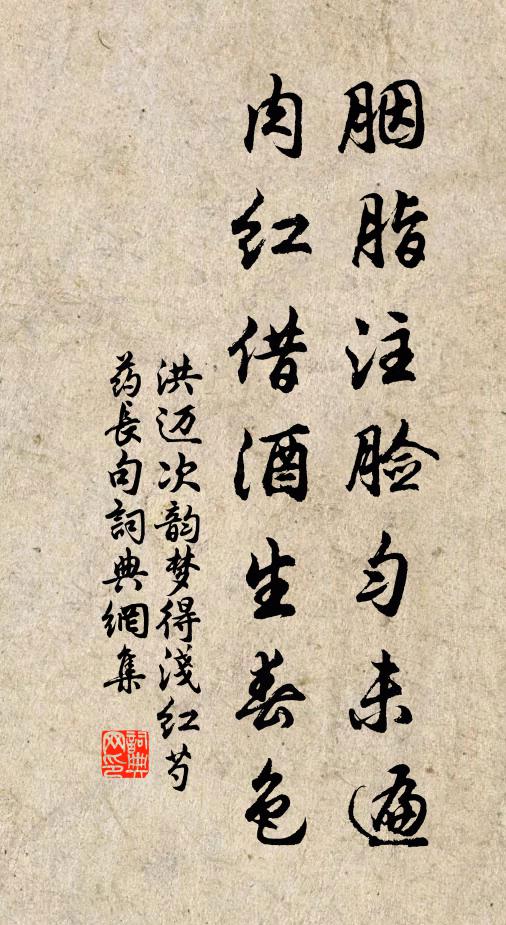 胭脂注脸匀未遍
肉红借酒生春色
洪迈次韵梦得淺红芍
药長句詞典網集
詞典
网印